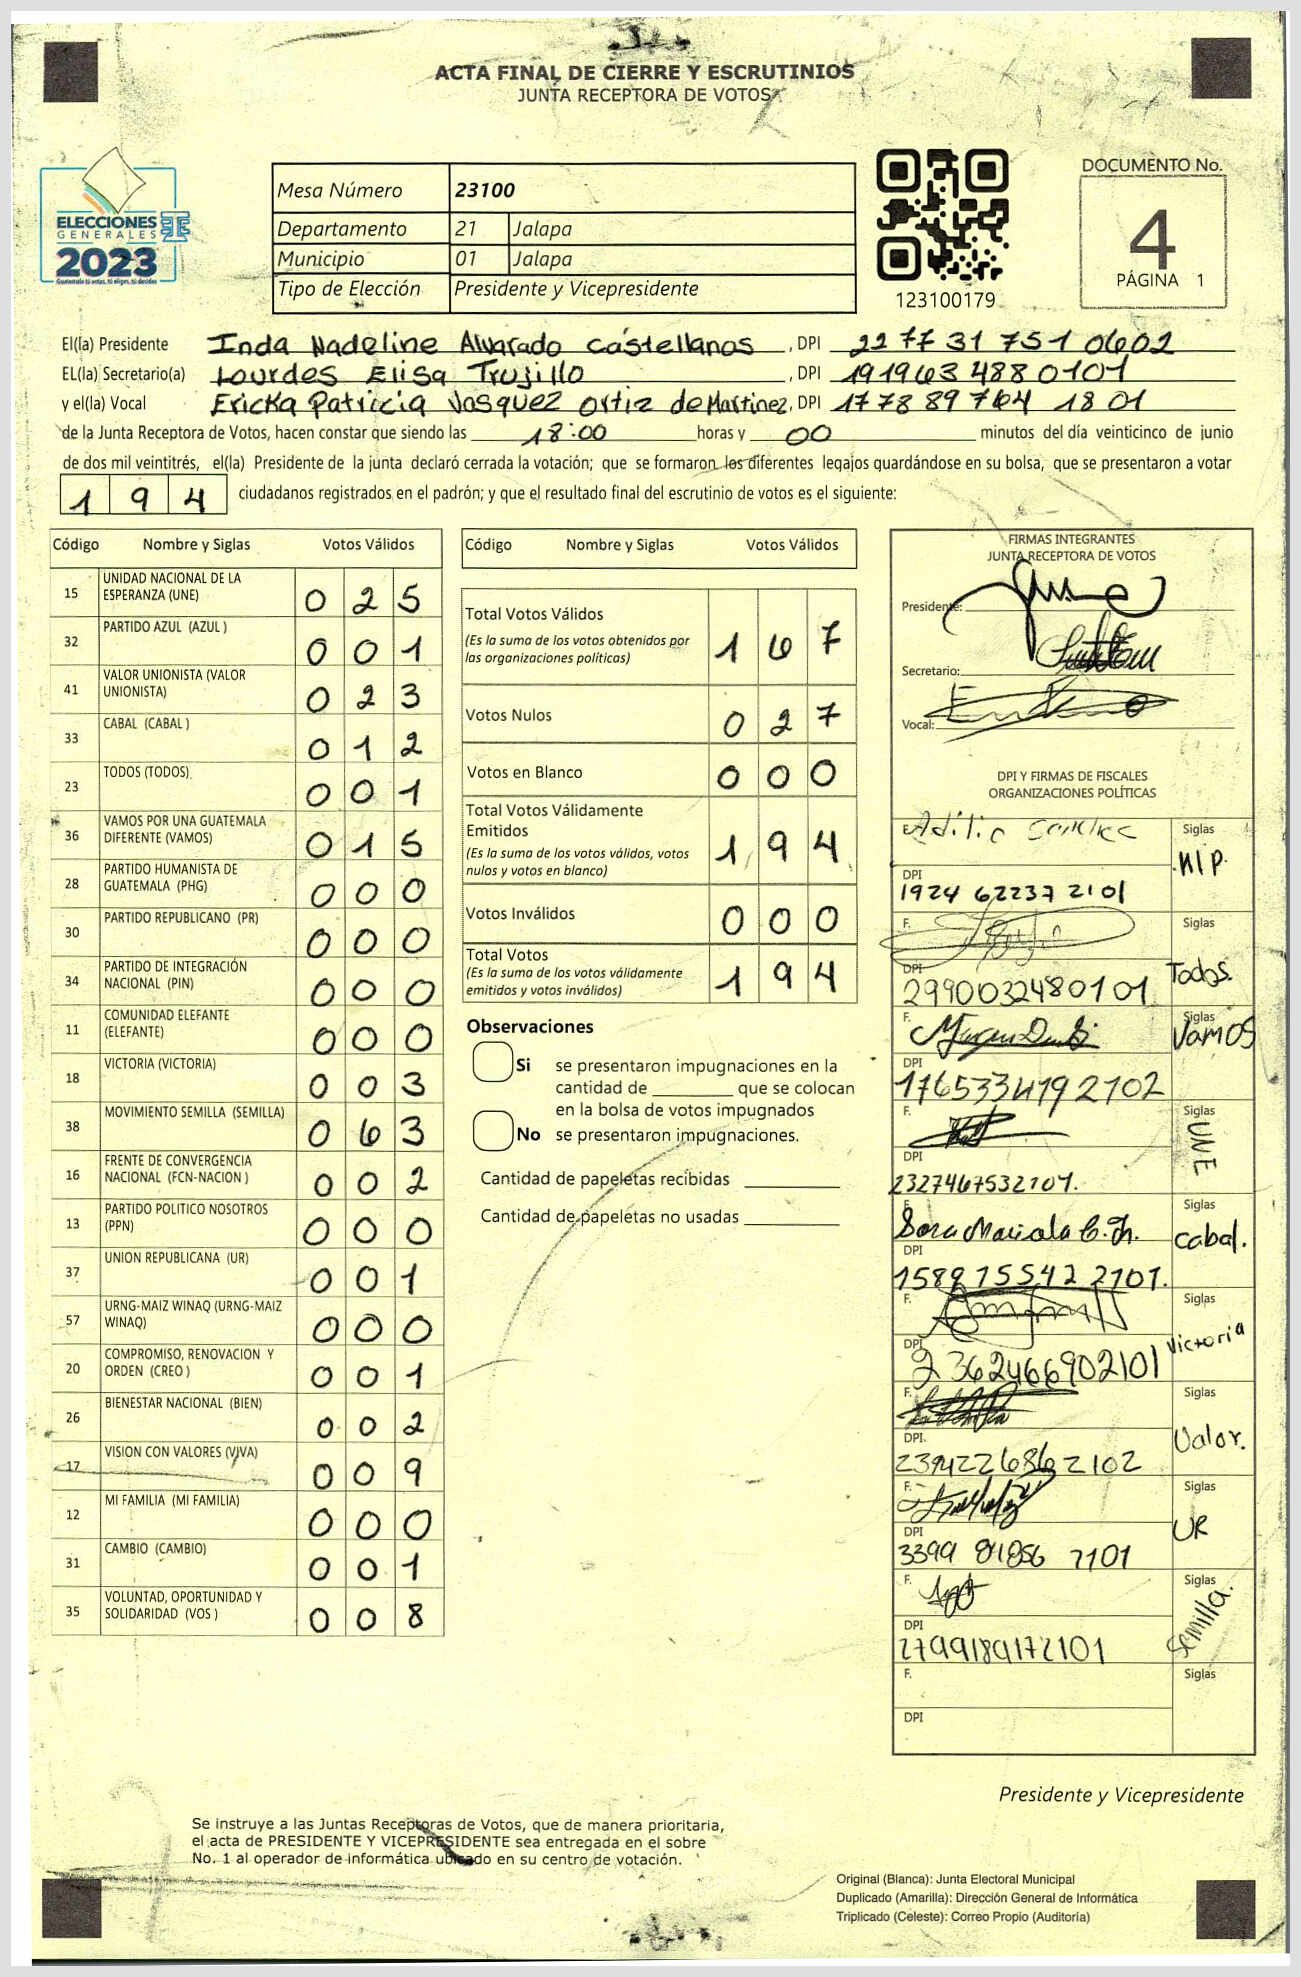 ACTA FINAL DE CIERRE Y ESCRUTINIOS
JUNTA RECEPTORA DE VOTOS
ELECCIONES
GENERALES
2023
Guatemala tú votas, tú eliges, tú decides
Mesa Número 23100
Departamento 21 Jalapa
Municipio 01 Jalapa
Tipo de Elección Presidente y Vicepresidente
123100179
DOCUMENTO No.
4
PÁGINA 1
El(la) Presidente Inda Nadeline Alvarado Castellanos, DPI 2277 31751 0602
EL(la) Secretario(a) Lourdes Elisa Trujillo, DPI 191963488 0101
y el(la) Vocal Ericka Patricia Vasquez Ortiz de Martinez, DPI 1778 89764 1801
de la Junta Receptora de Votos, hacen constar que siendo las 18:00 horas y 00 minutos del día veinticinco de junio
de dos mil veintitrés, el(la) Presidente de la junta declaró cerrada la votación; que se formaron los diferentes legajos guardándose en su bolsa, que se presentaron a votar
194 ciudadanos registrados en el padrón; y que el resultado final del escrutinio de votos es el siguiente:
Código Nombre y Siglas Votos Válidos
15 UNIDAD NACIONAL DE LA ESPERANZA (UNE) 025
32 PARTIDO AZUL (AZUL ) 001
41 VALOR UNIONISTA (VALOR UNIONISTA) 023
33 CABAL (CABAL ) 012
23 TODOS (TODOS) 001
36 VAMOS POR UNA GUATEMALA DIFERENTE (VAMOS) 015
28 PARTIDO HUMANISTA DE GUATEMALA (PHG) 000
30 PARTIDO REPUBLICANO (PR) 000
34 PARTIDO DE INTEGRACIÓN NACIONAL (PIN) 000
11 COMUNIDAD ELEFANTE (ELEFANTE) 000
18 VICTORIA (VICTORIA) 003
38 MOVIMIENTO SEMILLA (SEMILLA) 063
16 FRENTE DE CONVERGENCIA NACIONAL (FCN-NACION ) 002
13 PARTIDO POLITICO NOSOTROS (PPN) 000
37 UNION REPUBLICANA (UR) 001
57 URNG-MAIZ WINAQ (URNG-MAIZ WINAQ) 000
20 COMPROMISO, RENOVACION Y ORDEN (CREO ) 001
26 BIENESTAR NACIONAL (BIEN) 002
17 VISION CON VALORES (VIVA) 009
12 MI FAMILIA (MI FAMILIA) 000
31 CAMBIO (CAMBIO) 001
35 VOLUNTAD, OPORTUNIDAD Y SOLIDARIDAD (VOS ) 008
Código Nombre y Siglas Votos Válidos
Total Votos Válidos 167
(Es la suma de los votos obtenidos por
las organizaciones políticas)
Votos Nulos 027
Votos en Blanco 000
Total Votos Válidamente
Emitidos 194
(Es la suma de los votos válidos, votos
nulos y votos en blanco)
Votos Inválidos 000
Total Votos 194
(Es la suma de los votos válidamente
emitidos y votos inválidos)
Observaciones
Si se presentaron impugnaciones en la
cantidad de ________ que se colocan
en la bolsa de votos impugnados
No se presentaron impugnaciones.
Cantidad de papeletas recibidas
Cantidad de papeletas no usadas
FIRMAS INTEGRANTES
JUNTA RECEPTORA DE VOTOS
Presidente:
Secretario:
Vocal:
DPI Y FIRMAS DE FISCALES
ORGANIZACIONES POLÍTICAS
Siglas
DPI
1924 62237 2101
F. Siglas
Todos.
DPI
2990032480101
F. Siglas
Vamos
DPI
1765334192102
F. Siglas
UNE
DPI
2327467532101.
F. Siglas
Cabal.
DPI
1589155422101.
F. Siglas
Victoria
DPI
2362466902101
F. Siglas
Valor.
DPI.
2394226862102
F. Siglas
UR
DPI
3399 81856 2101
F. Siglas
Semilla.
DPI
2799189172101
F. Siglas
DPI
Presidente y Vicepresidente
Se instruye a las Juntas Receptoras de Votos, que de manera prioritaria,
el acta de PRESIDENTE Y VICEPRESIDENTE sea entregada en el sobre
No. 1 al operador de informática ubicado en su centro de votación.
Original (Blanca): Junta Electoral Municipal
Duplicado (Amarilla): Dirección General de Informática
Triplicado (Celeste): Correo Propio (Auditoría)